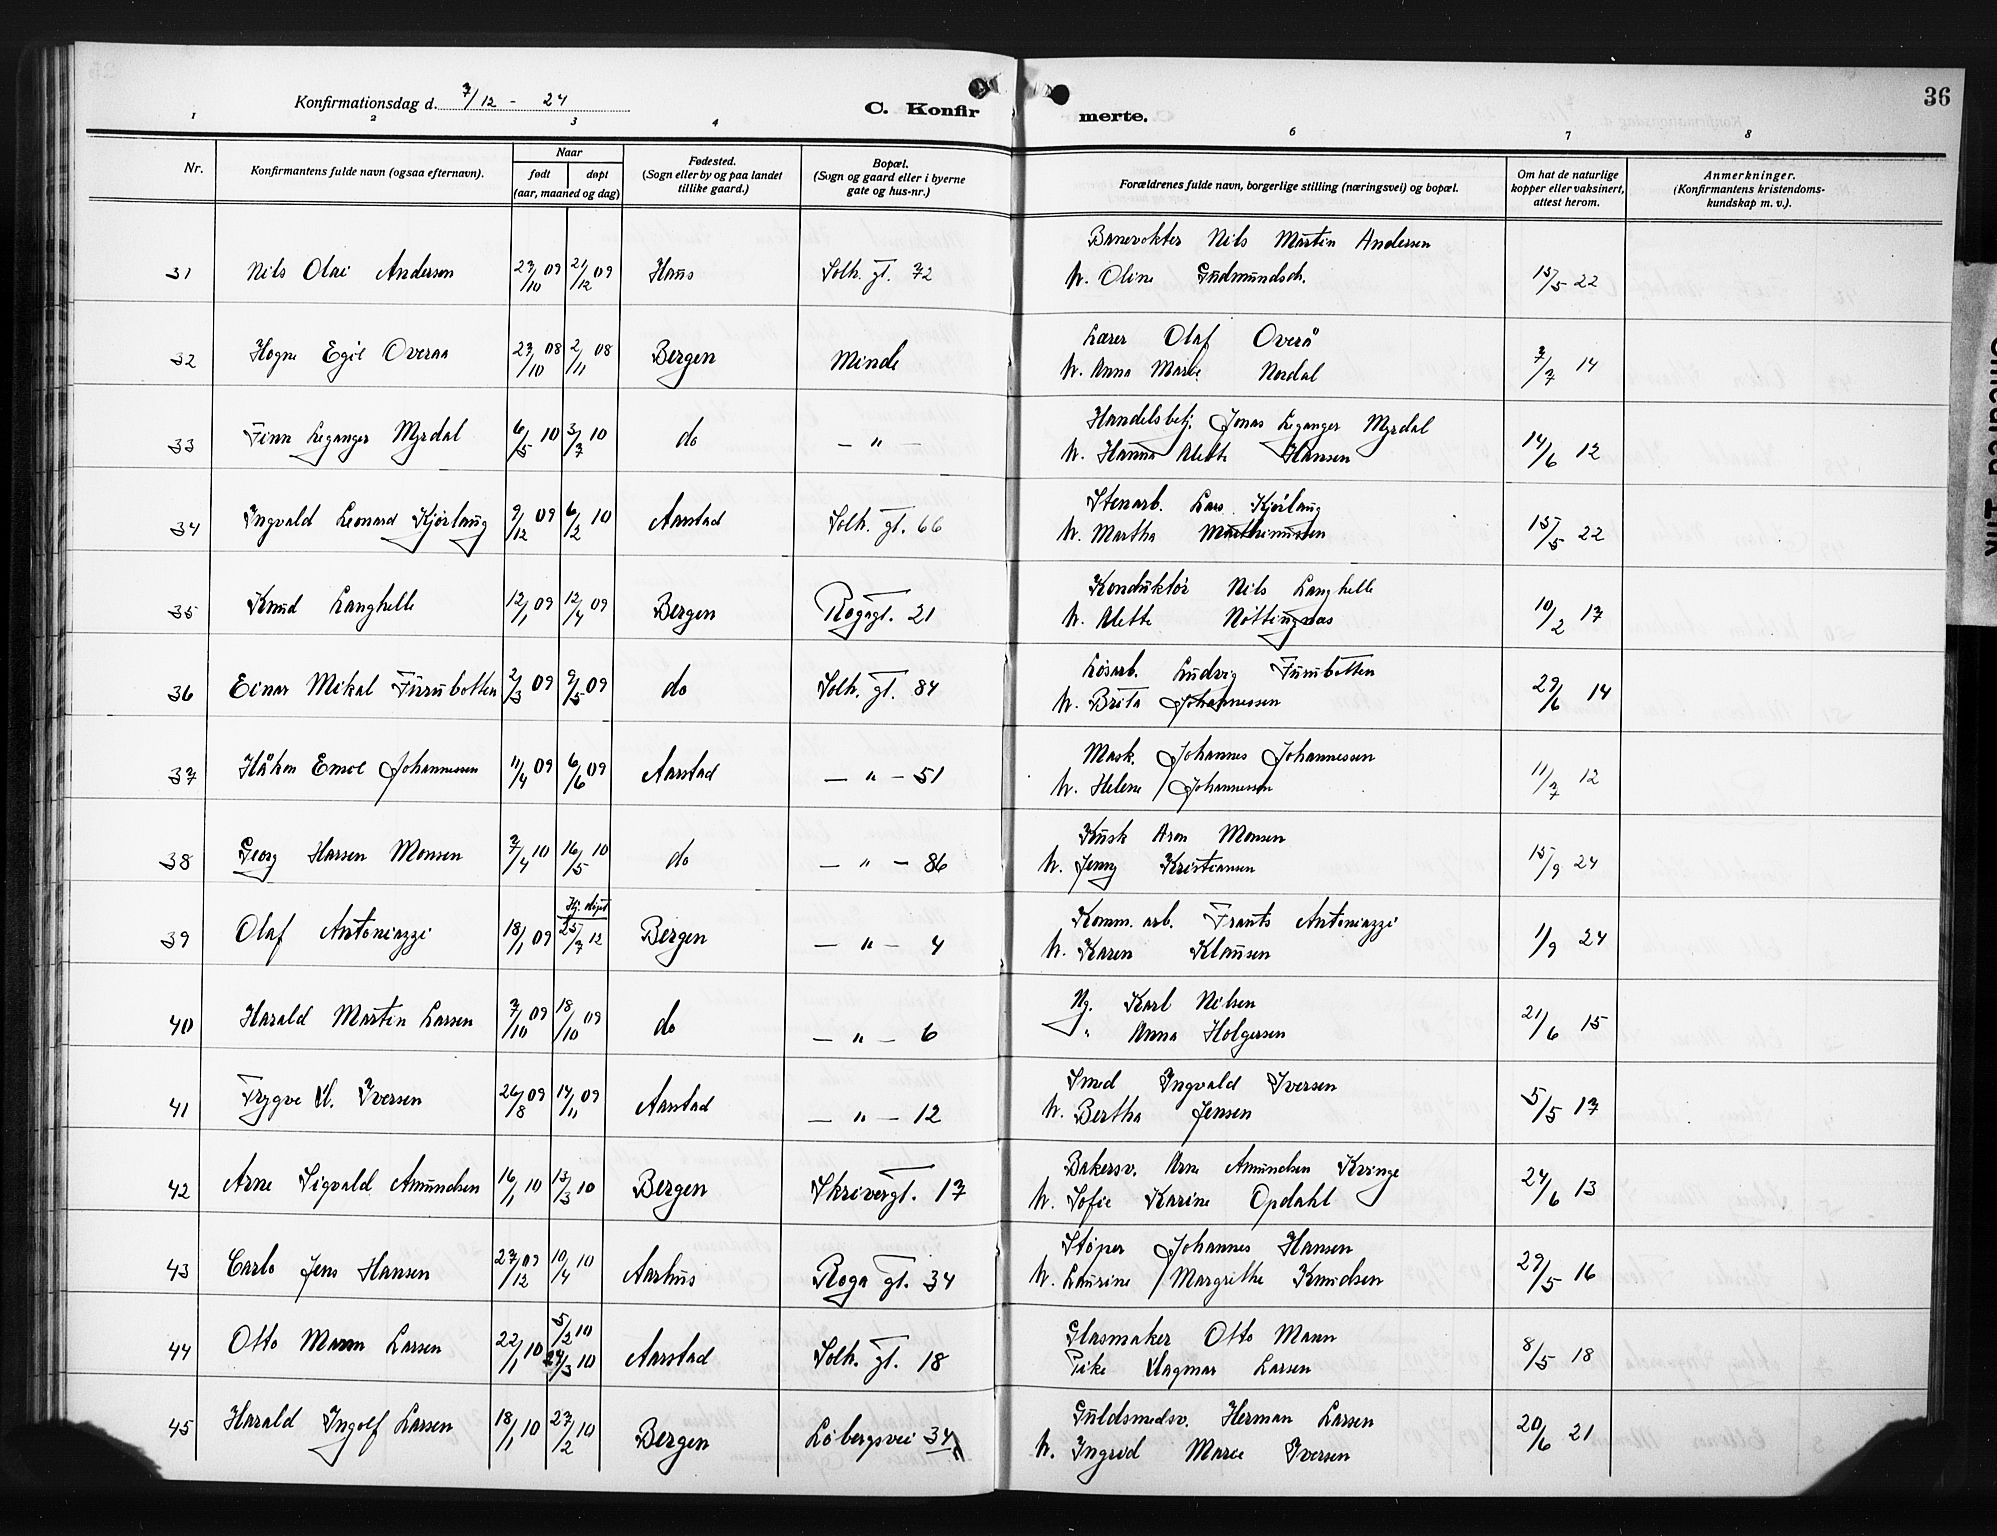 36
Konfirmationsdag d. 7/12 - 24
C. Konfirmerte.
1 2 3 4 6 7 8
Nr.
Konfirmantens fulde navn (ogsaa efternavn).
Naar
født døpt
(aar, maaned og dag)
Fødested.
(Sogn eller by og paa landet
tillike gaard.)
Bopæl.
(Sogn og gaard eller i byerne
gate og hus-nr.)
Forældrenes fulde navn, borgerlige stilling (næringsvei) og bopæl.
Om hat de naturlige
kopper eller vaksinert,
attest herom.
Anmerkninger.
(Konfirmantens kristendoms-
kundskap m. v.).
Banevokter Nils Martin Andersen
31 Nils Olai Andersen 27/10 09 21/12 09 Haus Solh. gt. 72 H. Oline Gudmundsd. 15/5 22
Lærer Olaf Overå
32 Hogne Egil Overaa 27/10 08 2/11 08 Bergen Minde H. Anna Marie Nordal 7/7 14
Handelsbetj. Jonas Leganger Myrdal
33 Finn Leganger Myrdal 6/5 10 3/7 10 do - " - H. Hanna Alette Hansen 14/6 12
Stenarb. Lars Kjörlaug
34 Ingvald Leonard Kjørlaug 9/12 09 6/2 10 Aarstad Solh. gt. 66 H. Martha 15/5 22
Konduktør Nils Langhelle
35 Knud Langhelle 12/1 09 12/4 09 Bergen Rogagt. 21 H. Alette Nöttingnæs 10/2 17
Løsarb. Ludvig Furubotten
36 Einar Mikal Furubotten 2/3 09 9/5 09 do Solh. gt. 84 H. Brita Johannessen 29/6 14
Mask. Johannes Johannessen
37 Håkon Emil Johannessen 11/4 09 6/6 09 Aarstad - " - 51 H. Helene Johannessen 11/7 12
Kusk Aron Monsen
38 Georg Hansen Monsen 7/4 10 16/5 10 do - " - 86 H. Jenny Kristiansen 15/9 24
Hj. døpt
Komm. arb. Frants Antoniazzi
39 Olaf Antoniazzi 18/1 09 25/7 12 Bergen - " - 4 H. Karen Klausen 1/9 24
Ug. Karl Nilsen
40 Harald Martin Larsen 7/10 09 18/10 09 do - " - 6 " Anna Holgersen 21/6 15
Smed Ingvald Iversen
41 Trygve U. Iversen 26/8 09 14/11 09 Aarstad - " - 12 H. Bertha Jensen 5/5 17
Bakersv. Arne Amundsen Kvinge
42 Arne Sigvald Amundsen 16/1 10 13/3 10 Bergen Skrivergt. 17 H. Sofie Karine Opdahl 24/6 13
Støper Johannes Hansen
43 Carlo Jens Hansen 27/12 09 10/4 10 Aarhus Roga gt. 34 H. Laurine Margrethe Knudsen 29/5 16
5/2 10
Glasmaker Otto Mann
44 Otto Mann Larsen 22/1 10 24/3 10 Aarstad Solh. gt. 18 Pike Dagmar Larsen 8/5 18
Guldsmedsv. Herman Larsen
45 Harald Ingolf Larsen 18/1 10 27/2 10 Bergen Løbergsvei 34 H. Ingrid Marie Iversen 20/6 21